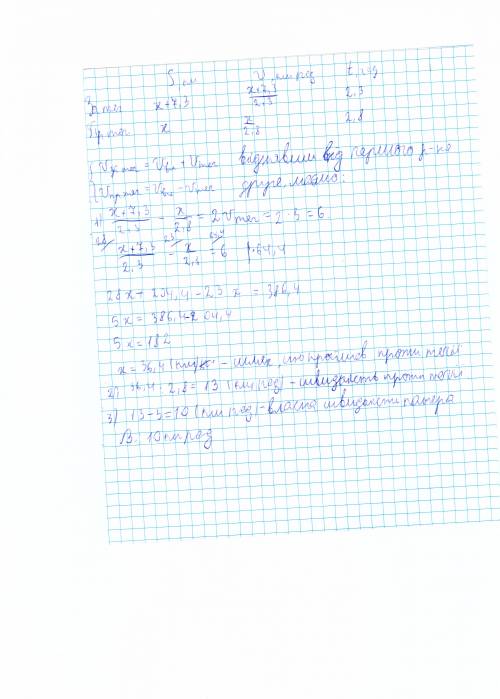 S, км V, км/год t, год
За теч x+7,3 (x+7,3)/2,3 2,3
Пр теч x x/2,8 2,8
{ Vза теч = Vвл + Vтеч віднявши від першого р-ня
{ Vпр теч = Vвл - Vтеч друге, маємо:
1) (x+7,3)/2,3 - x/2,8 = 2Vтеч = 2·3 = 6
28/ (x+7,3)/2,3 - 23/ x/2,8 = 6 |·64,4
28x + 204,4 - 23x = 386,4
5x = 386,4-204,4
5x = 182
x = 36,4 (км) - шлях, що пройшов проти течії
2) 36,4 : 2,8 = 13 (км/год) - швидкість проти течії
3) 13-3=10 (км/год) - власна швидкість катера
В. 10 км/год